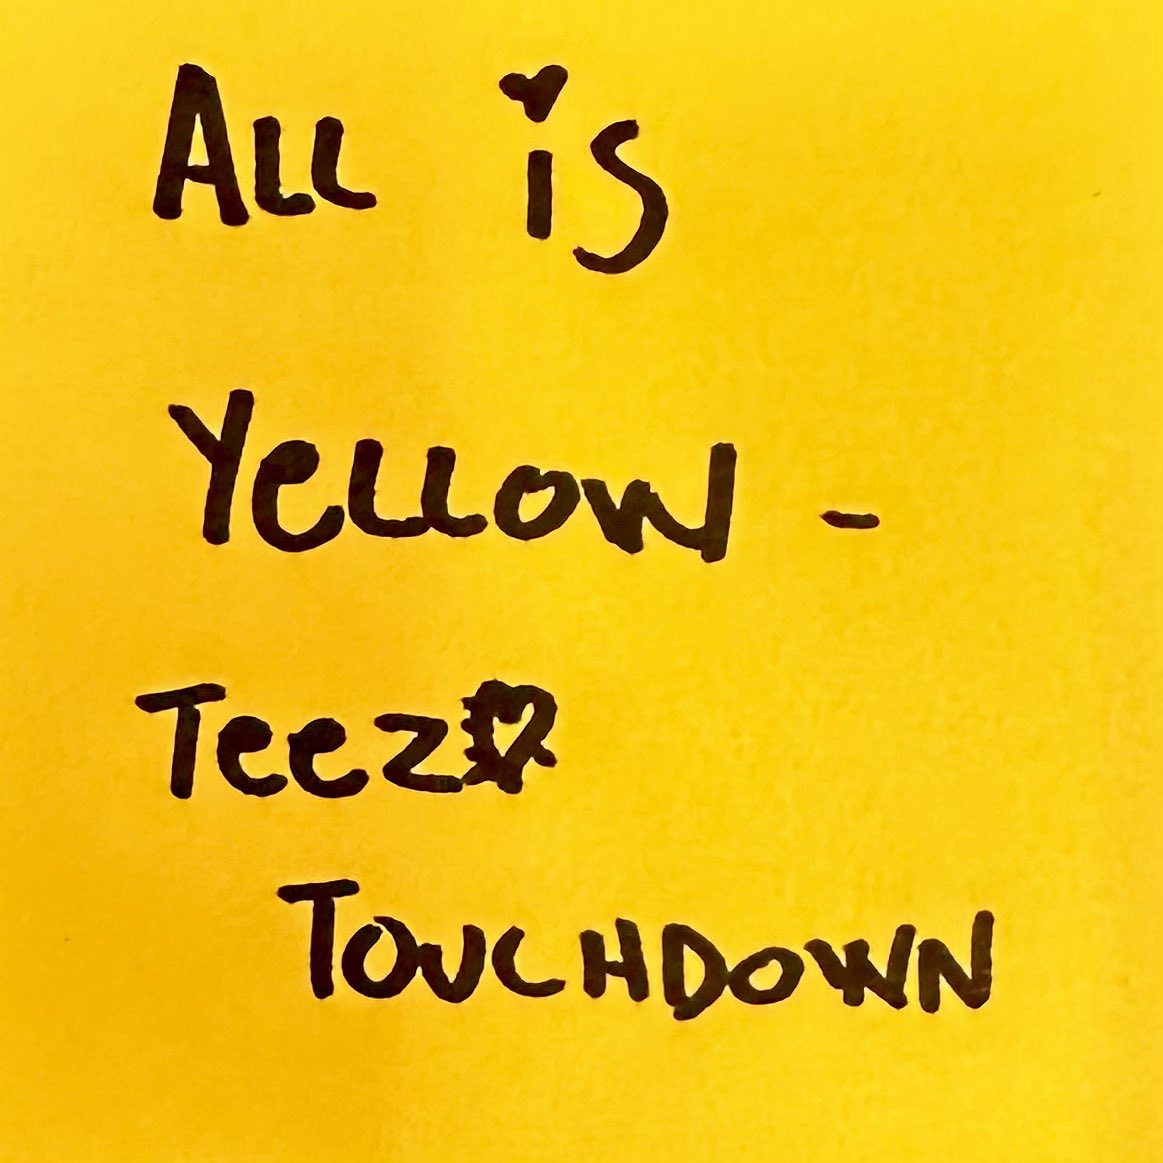 All is
Yellow -
Teezo
Touchdown